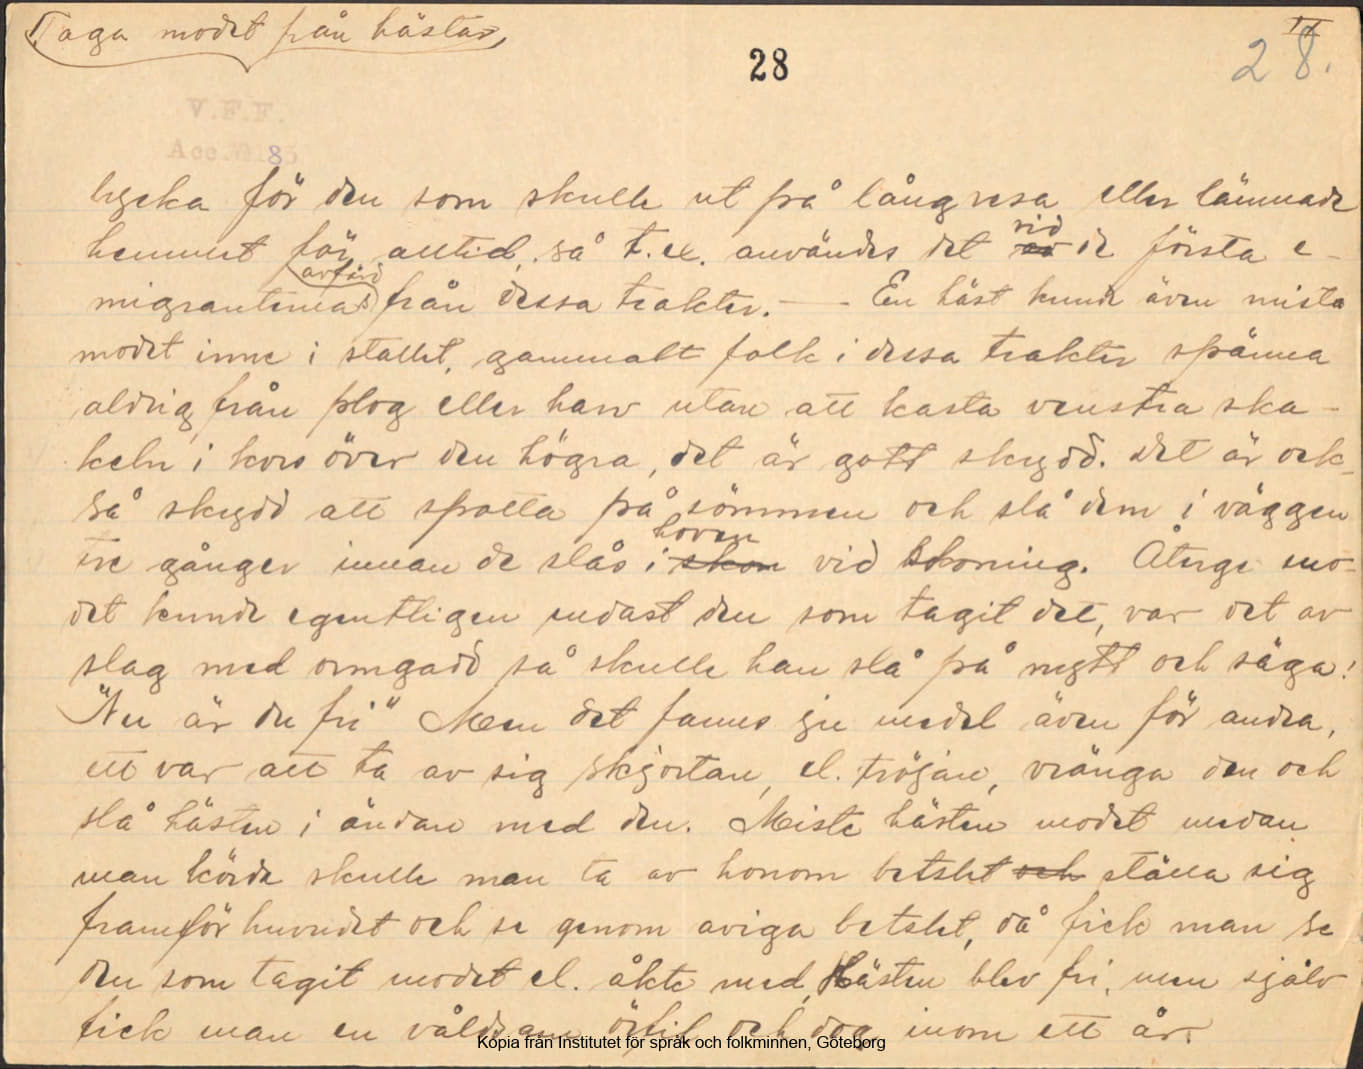 Taga modet från hästar,
28
II
28.
V.F.F.
Acc. 185
lycka för den som skulle ut på långresa eller lämnade
hemmet för alltid, så t.ex. användes det vid de första e-
avfärd
migranternas från dessa trakter. — - En häst kunde även mista
modet inne i stallet, gammalt folk i dessa trakter spänna
aldrig från plog eller harv utan att kasta venstra ska-
keln i kors över den högra, det är gott skydd. Det är ock-
så skydd att spotta på sömmen och slå dem i väggen
tre gånger innan de slås i hoven vid skoning. Återge mo-
det kunde egentligen endast den som tagit det, var det av
slag med ormgadd så skulle han slå på nytt och säga:
"Nu är du fri" Men det fanns ju medel även för andra,
ett var att ta av sig skjortan, el. tröjan, vränga den och
slå hästen i ändan med den. Miste hästen modet medan
man körde skulle man ta av honom betslet och ställa sig
framför huvudet och se genom aviga betslet, då fick man se
den som tagit modet el. åkte med, Hästen blev fri, men själv
fick man en våldsam örfil och dog inom ett år.
Kopia från Institutet för språk och folkminnen, Göteborg